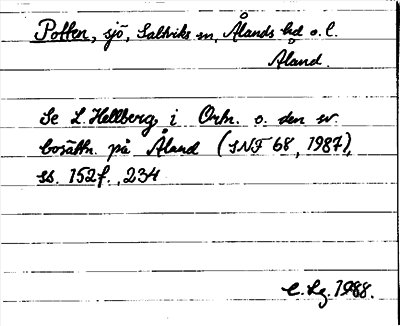 Potten, sjö, Saltviks sn, Ålands hd o. l.
Åland.
Se L. Hellberg i Ortn. o. den sv.
bosättn. på Åland (SNF 68, 1987),
ss. 152f., 234
C. Lg. 1988.